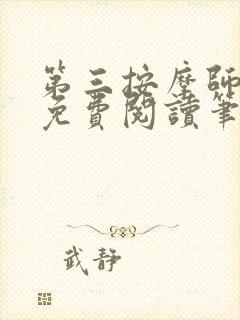 第三按摩师
免费閱讀筆
武静